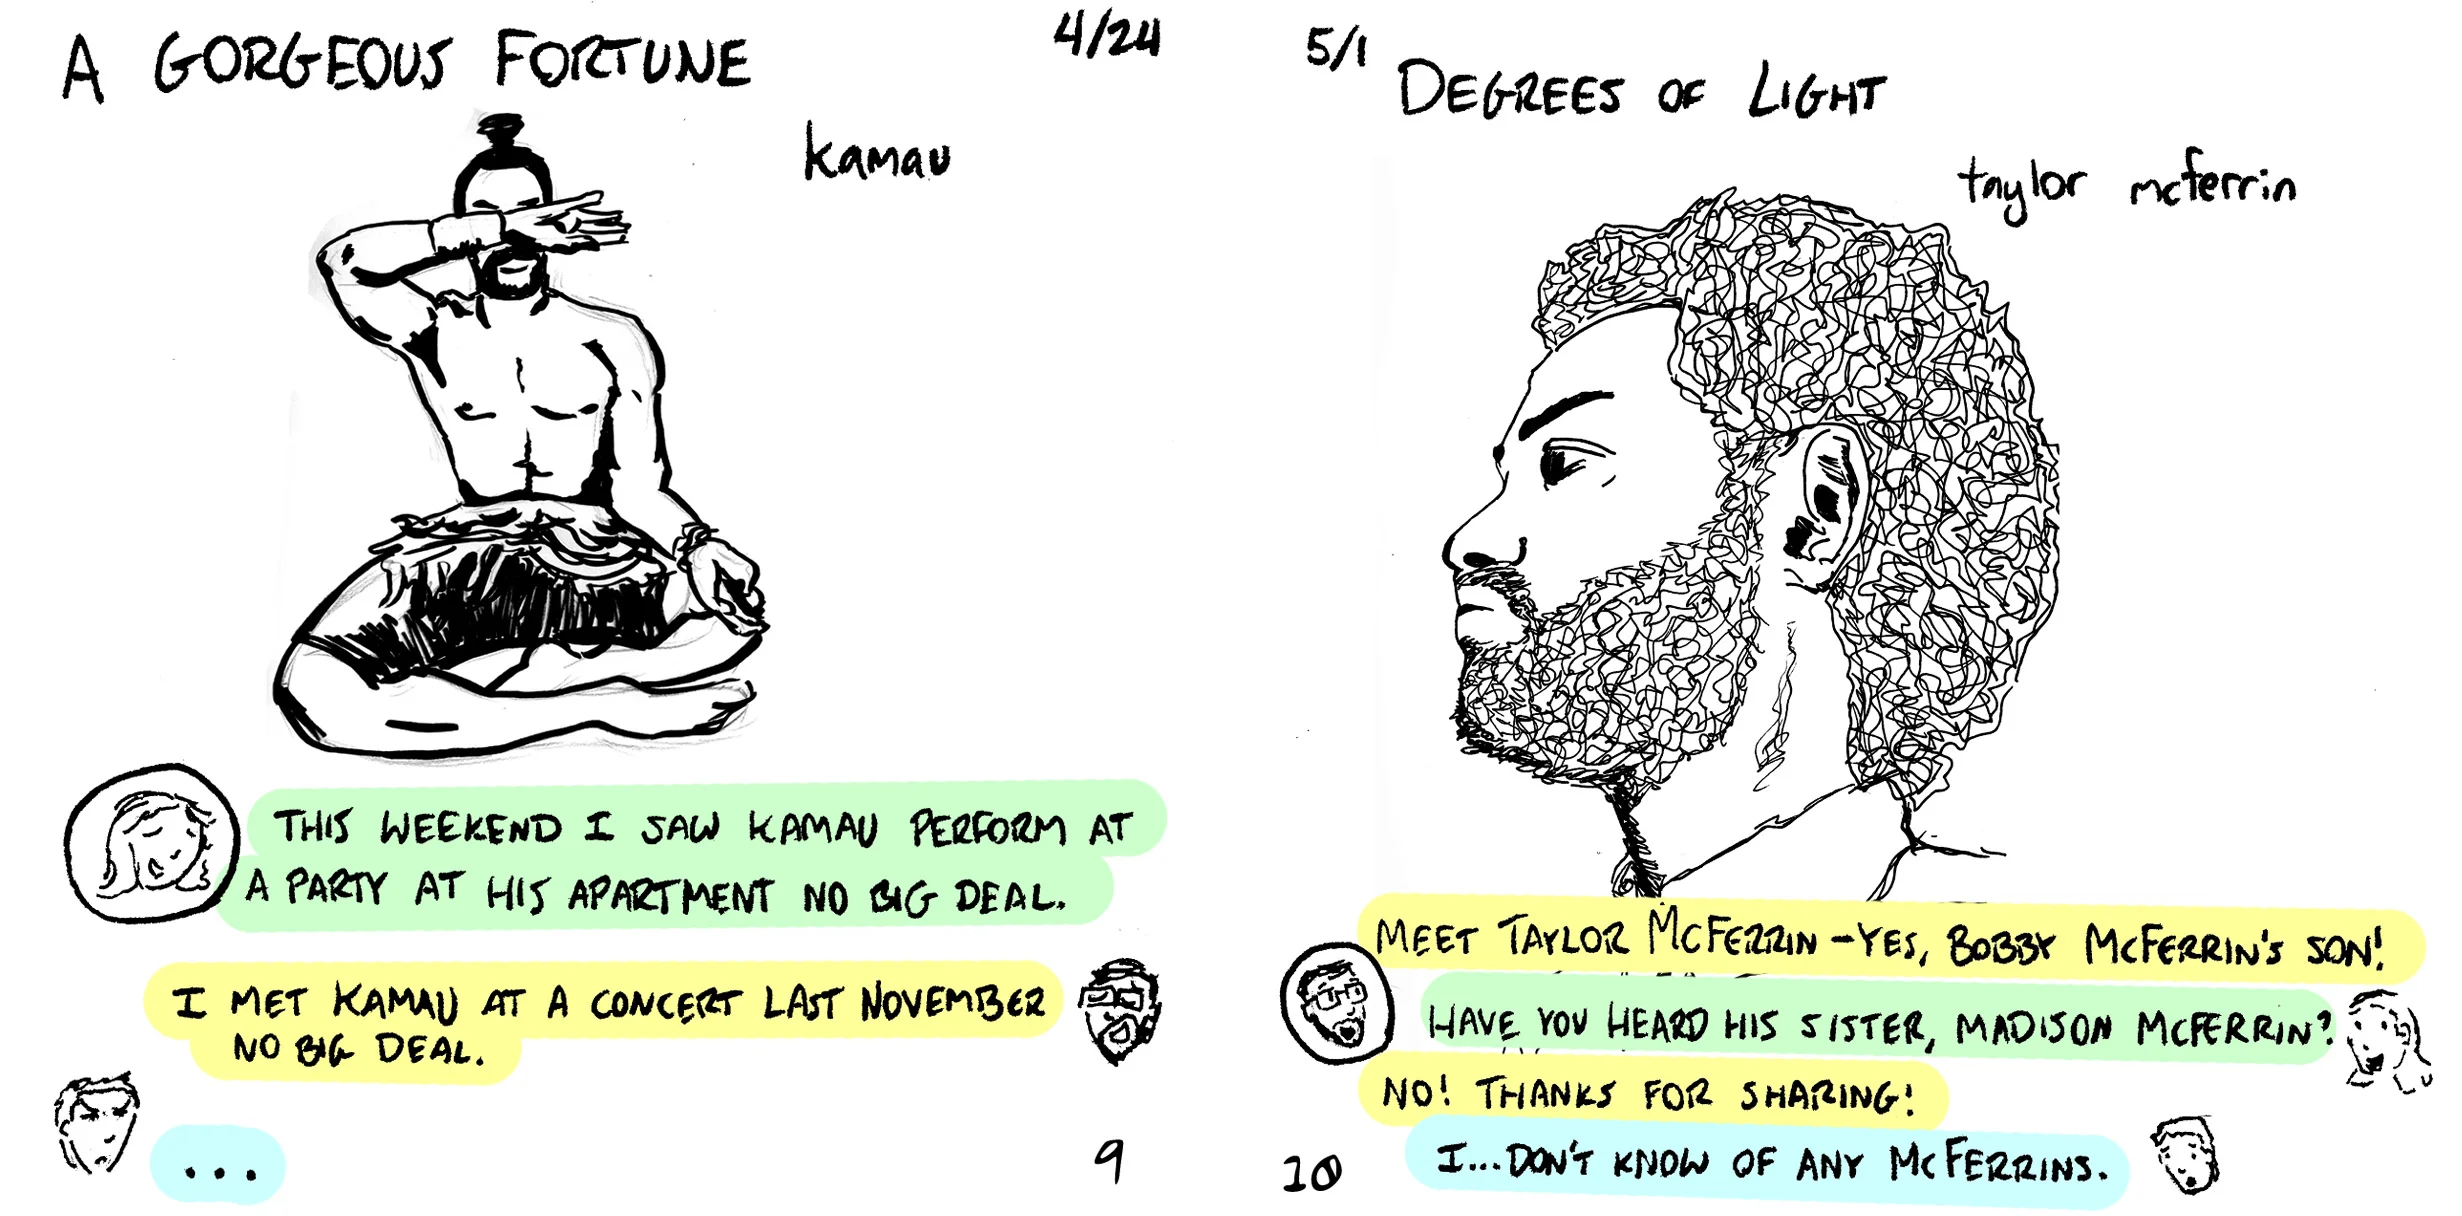 A GORGEOUS FORTUNE
4/24
kamau
THIS WEEKEND I SAW KAMAU PERFORM AT
A PARTY AT HIS APARTMENT NO BIG DEAL.
I MET KAMAU AT A CONCERT LAST NOVEMBER
NO BIG DEAL.
...
9
5/1
DEGREES OF LIGHT
taylor mcferrin
MEET TAYLOR MCFERRIN - YES, BOBBY MCFERRIN'S SON!
HAVE YOU HEARD HIS SISTER, MADISON MCFERRIN?
NO! THANKS FOR SHARING!
I...DON'T KNOW OF ANY MCFERRINS.
10